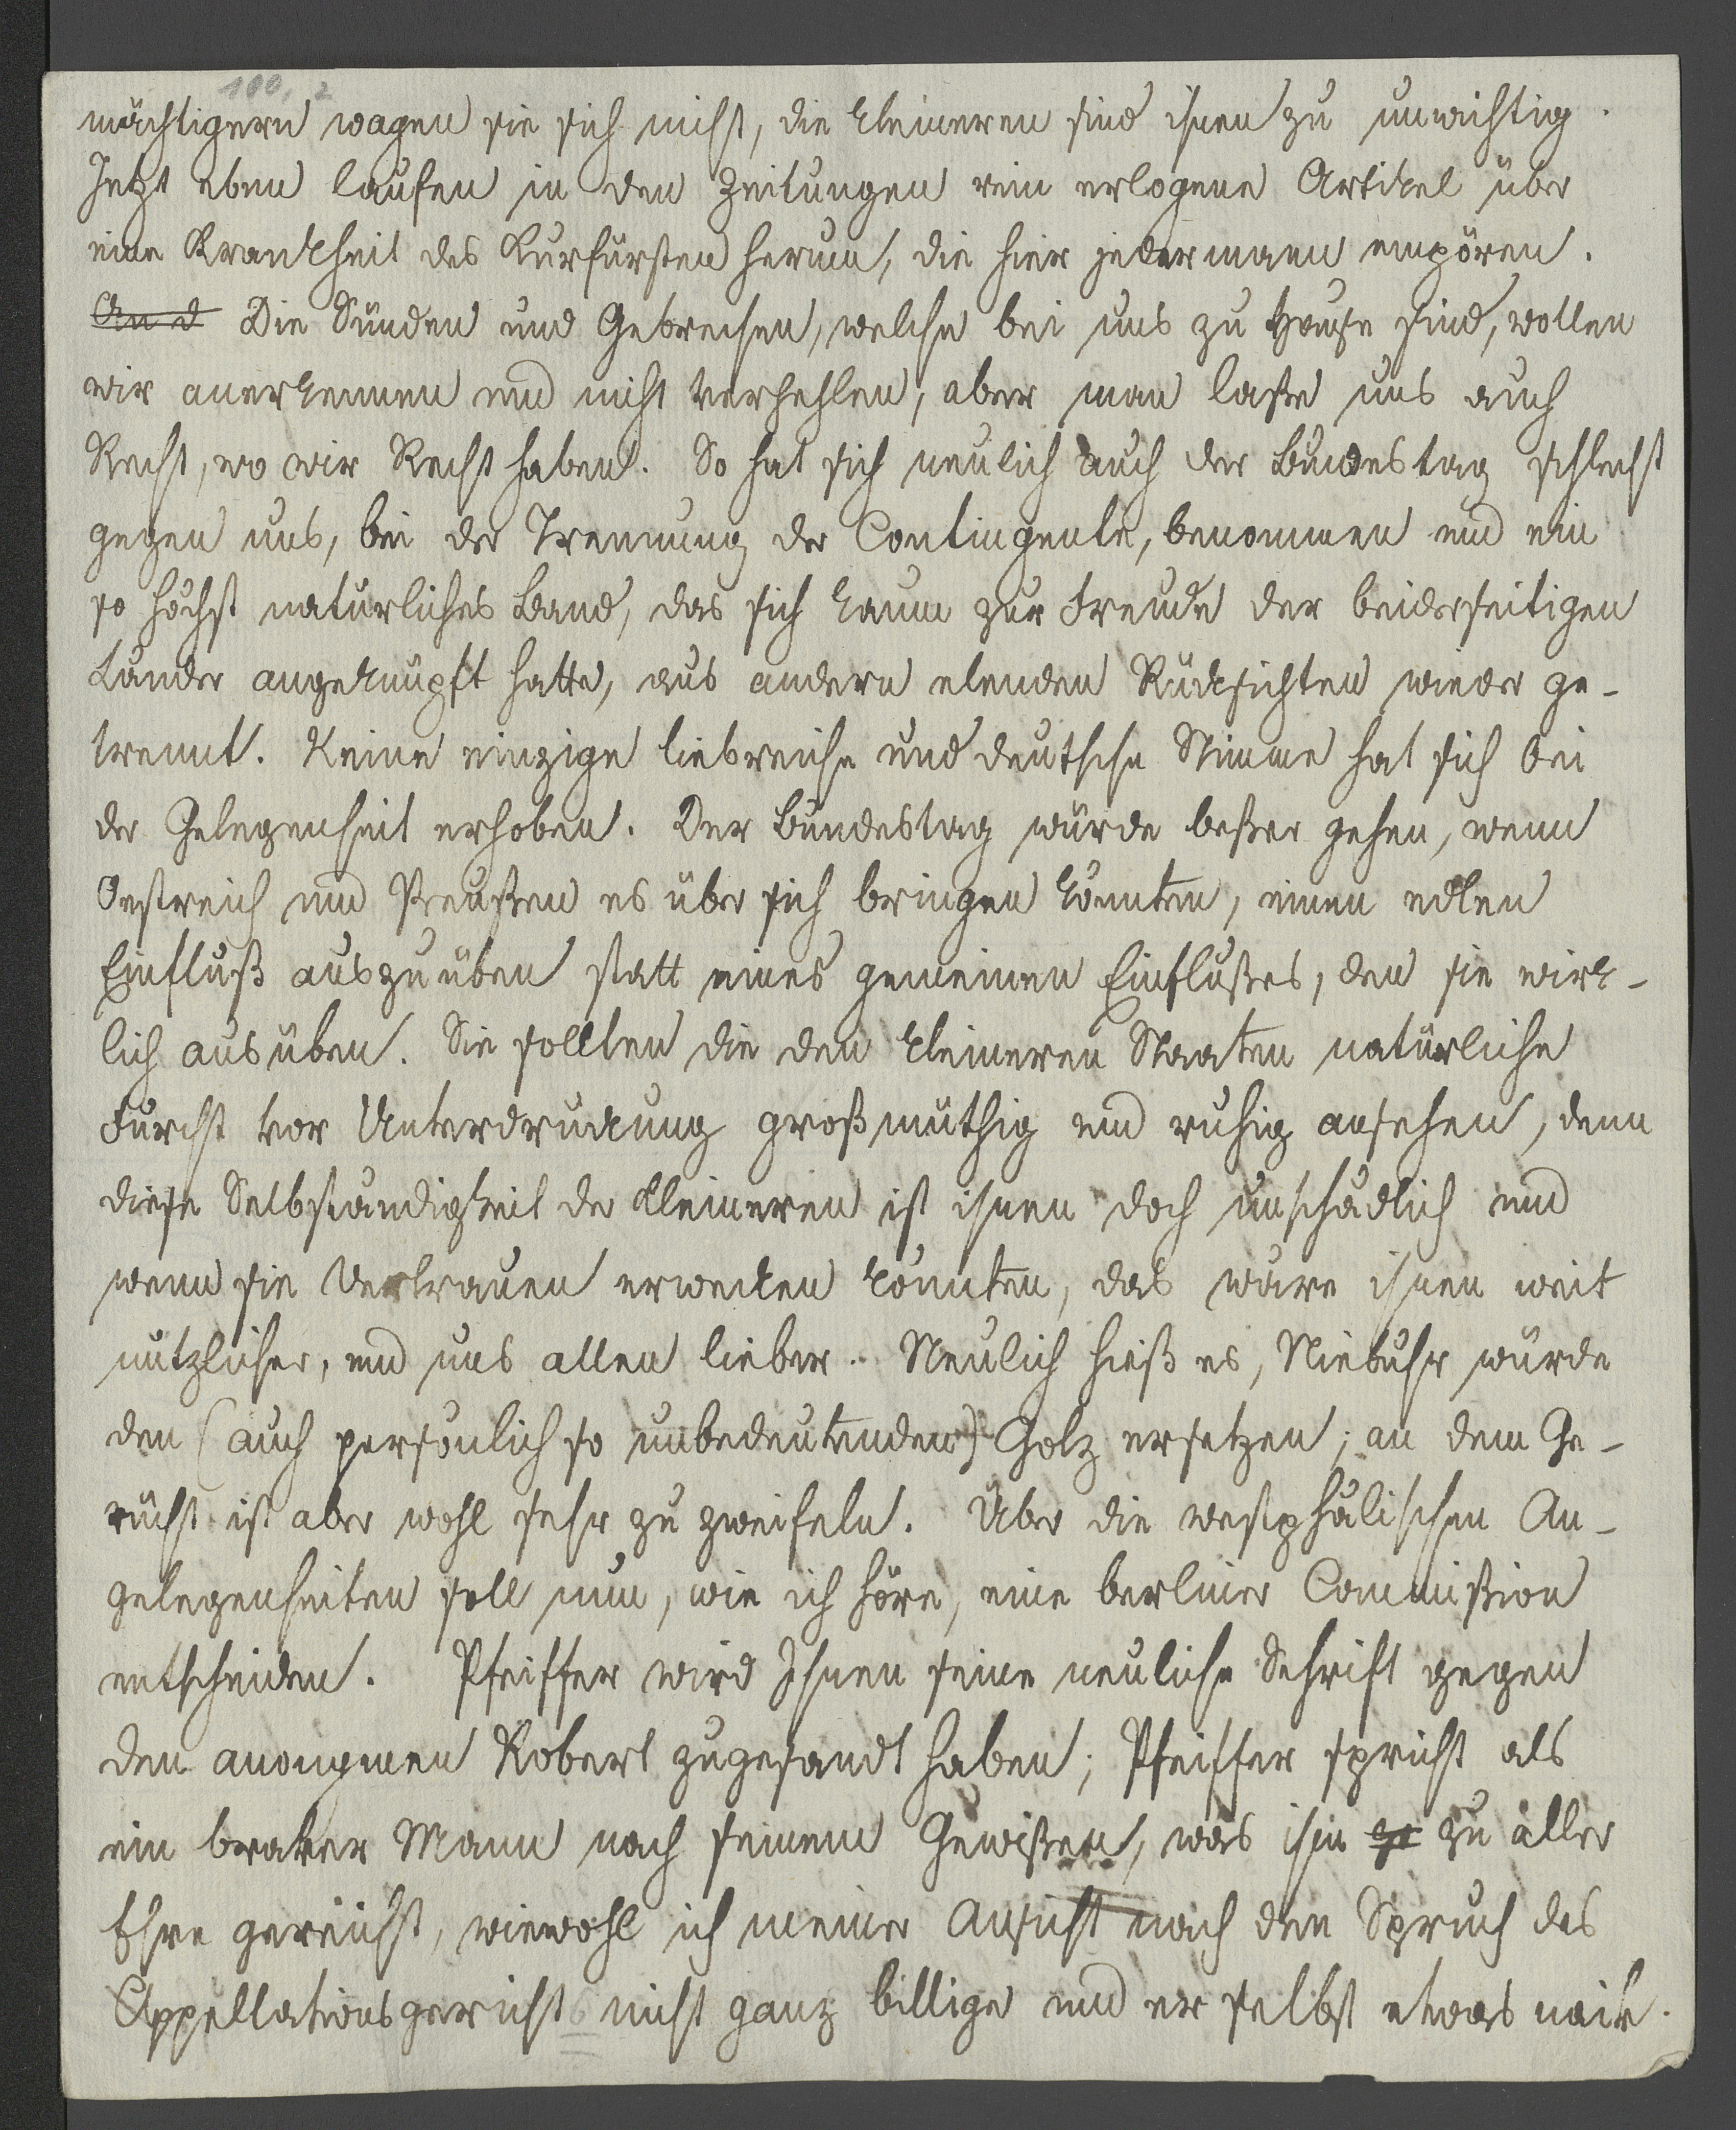 100, 2
mächtigern wagen sie sich nicht, die kleineren sind ihnen zu unwichtig.
Jetzt eben laufen in den Zeitungen rein erlogene Artikel über
eine Krankheit des Kurfürsten herum, die hier jedermann empören.
An d Die Sünden und Gebrechen, welche bei uns zu Hause sind, wollen
wir anerkennen und nicht verhehlen, aber man laße uns auch
Recht, wo wir Recht haben. So hat sich neulich auch der Bundestag schlecht
gegen uns, bei der Trennung der Contingente, benommen und ein
so höchst natürliches Band, das sich kaum zur Freude der beiderseitigen
Länder angeknüpft hatte, aus andern elenden Rücksichten wieder ge-
trennt. Keine einzige liebreiche und deutsche Stimme hat sich bei
der Gelegenheit erhoben. Der Bundestag würde beßer gehen, wenn
Oestreich und Preußen es über sich bringen könnten, einen edlen
Einfluß auszuüben statt eines gemeinen Einflußes, den sie wirk-
lich ausüben. Sie sollten die den kleineren Staaten natürliche
Furcht vor Unterdrückung großmüthig und ruhig ansehen, denn
diese Selbständigkeit der kleineren ist ihnen doch unschädlich und
wenn sie Vertrauen erwecken könnten, das wäre ihnen weit
nützlicher, und uns allen lieber. Neulich hieß es, Niebuhr würde
den (auch persönlich so unbedeutenden) Golz ersetzen; an dem Ge-
rücht ist aber wohl sehr zu zweifeln. Über die westphälischen An-
gelegenheiten soll nun, wie ich höre, eine berliner Commißion
entscheiden. Pfeiffer wird Ihnen seine neuliche Schrift gegen
den anonymen Robert zugesandt haben; Pfeiffer spricht als
ein braver Mann nach seinem Gewißen, was ihm ge zu aller
Ehre gereicht, wiewohl ich meiner Ansicht nach den Spruch des
Appellationsgerichts nicht ganz billige und er selbst etwas naiv.